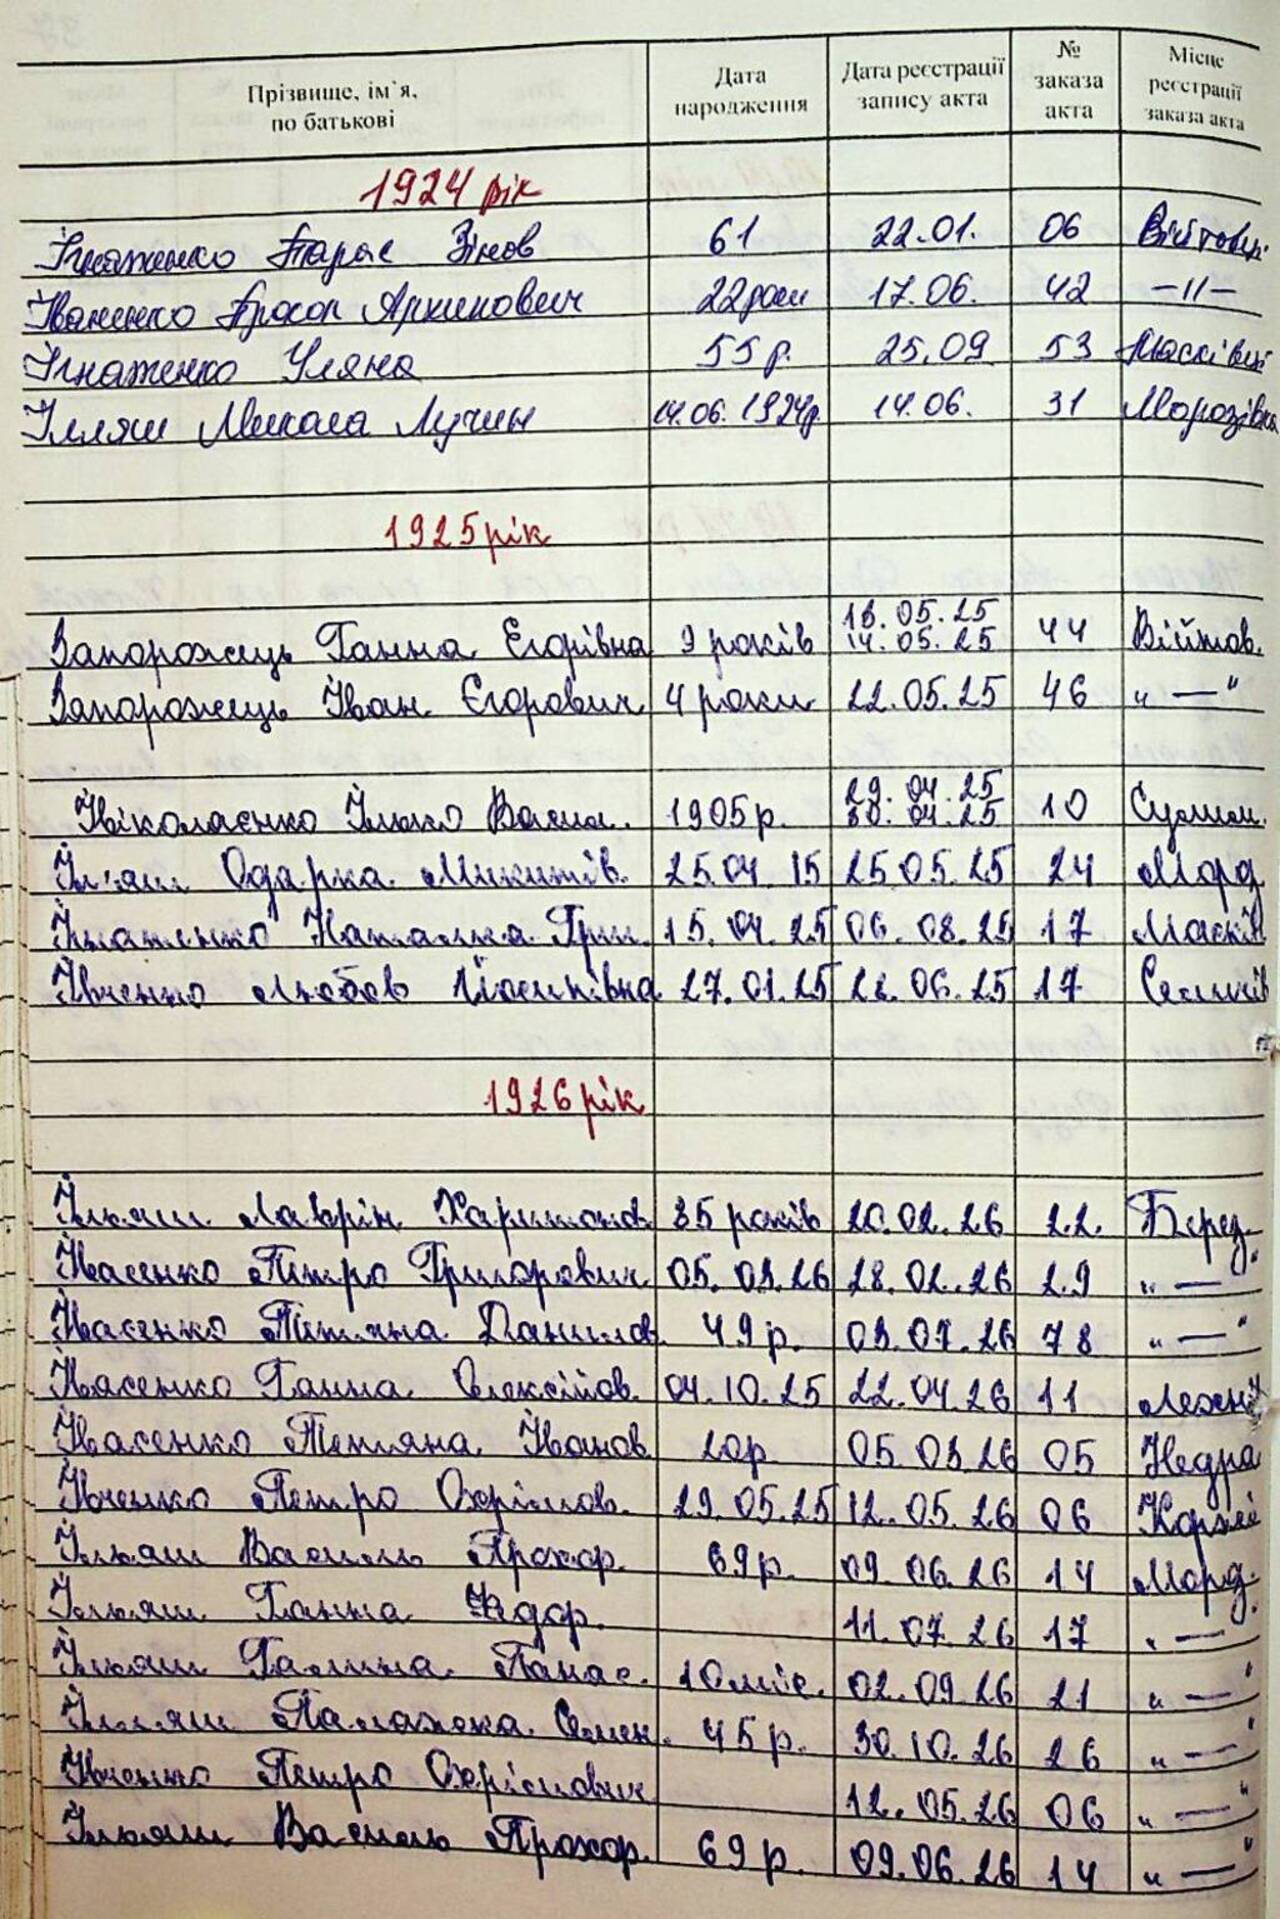 Прізвище, ім`я, по батькові Дата народження Дата реєстрації запису акта № заказа акта Місце реєстрації заказа акта
1924 рік
Ігнатенко Тарас Зінов 61 22.01. 06 Війтовці
Іваненко Прокоп Архипович 22 роки 17.06. 42 -||-
Ігнатенко Уляна 55 р. 25.09 53 Масківці
Ілляш Микола Лучин 14.06.1924р. 14.06. 31 Морозівка
1925 рік
Запорожець Ганна Єгорівна 9 років 13.05.25 14.05.25 44 Війтов.
Запорожець Іван Єгорович 4 роки 22.05.25 46 "—"
Ніколаєнко Ілько Васил. 1905 р. 29.04.25 30.04.25 10
Іл'яш Одарка Микитів. 25.04.15 25.05.25 24 Морд
Наталка Гри. 15.04.25 06.08.25 17 Масків
Івченко Любов Йосипівна 27.01.25 22.06.25 17 Селичів
1926 рік
Ільяш Лаврін Харитонов. 35 років 20.02.26 22. Берез.
Івасенко Петро Григорович 05.03.26 28.02.26 29 "—"
Івасенко Тетяна Данилов. 49 р. 03.07.26 78 "—"
Івасенко Ганна Олексіїв. 04.10.25 22.04.26 11 Лехні
Івасенко Тетяна Іванов. 20р 05.03.26 05 Недра
Івченко Петро Охрімов. 29.05.25 12.05.26 06 Коржі
Ільяш Василь Прохор. 69 р. 09.06.26 14 Морд.
Ільяш Ганна Федор. 11.07.26 17 "—"
Ільяш Галина Панас. 10 міс. 02.09.26 21 "—"
Ілляш Палажка Семен. 45 р. 30.10.26 26 "—"
Івченко Петро Охрімович 12.05.26 06 "—"
Ільяш Василь Прохор. 69 р. 09.06.26 14 "—"